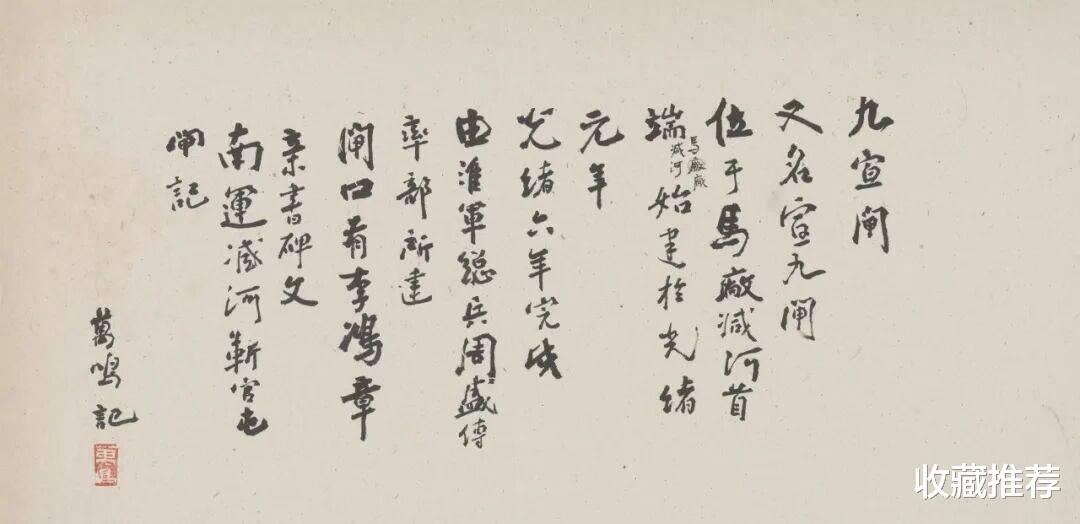 九宣閘
又名宣九閘
位于馬廠減河首
端始建於光緒
馬廠廠
減河
元年
光緒六年完成
由淮軍總兵周盛傳
率部所建
閘口有李鴻章
親書碑文
南運減河靳官屯
閘記
萬鳴記
收藏推荐